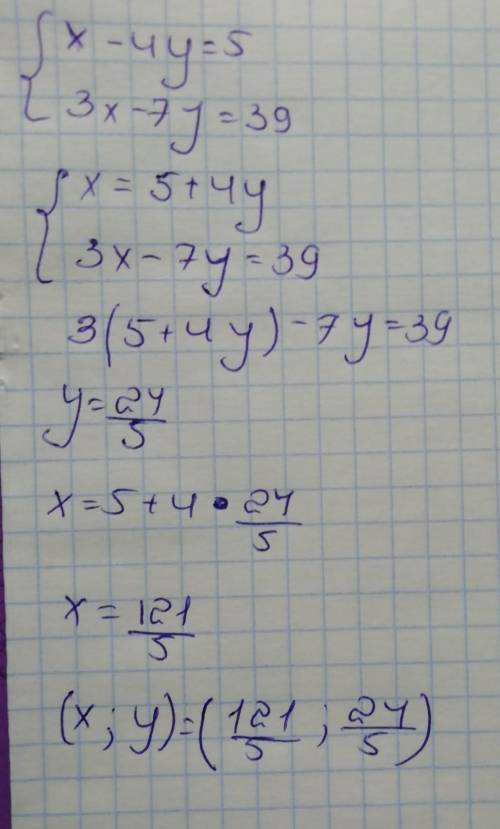 x - 4y = 5
3x - 7y = 39
x = 5 + 4y
3x - 7y = 39
3(5 + 4y) - 7y = 39
y = 24/5
x = 5 + 4 • 24/5
x = 121/5
(x ; y) = (121/5 ; 24/5)